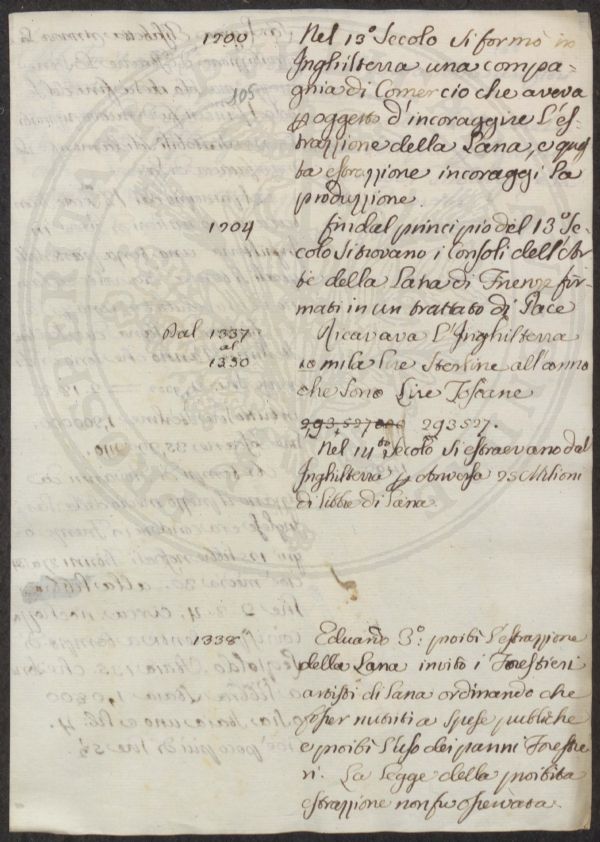 1200 Nel 13º Secolo si formò in
Inghilterra una compa-
gnia di Comercio che aveva
105
p oggetto d'incoraggire l'es-
trazzione della Lana, e ques
ta estrazzione incoraggi la
produzzione.
1204 fin dal principio del 13º Se-
colo si trovano i Consoli dell'Ar
te della Lana di Firenze fir-
mati in un trattato di Pace
Dal 1337 Ricavava l'Inghilterra
al
1350 10 mila lire Sterline all'anno
che sono Lire Toscane
293,527 293.527.
Nel 14to Secolo si estraevano dal
Inghilterra p 25 Milioni
di libbre di Lana.
1338 Eduardo 3º: proibì l'estrazzione
della Lana invitò i Forestieri
artisti di Lana ordinando che
fosser nutriti a spese publiche
e proibì l'uso dei panni Forestie
ri. La legge della proibita
estrazzione non fu osservata.